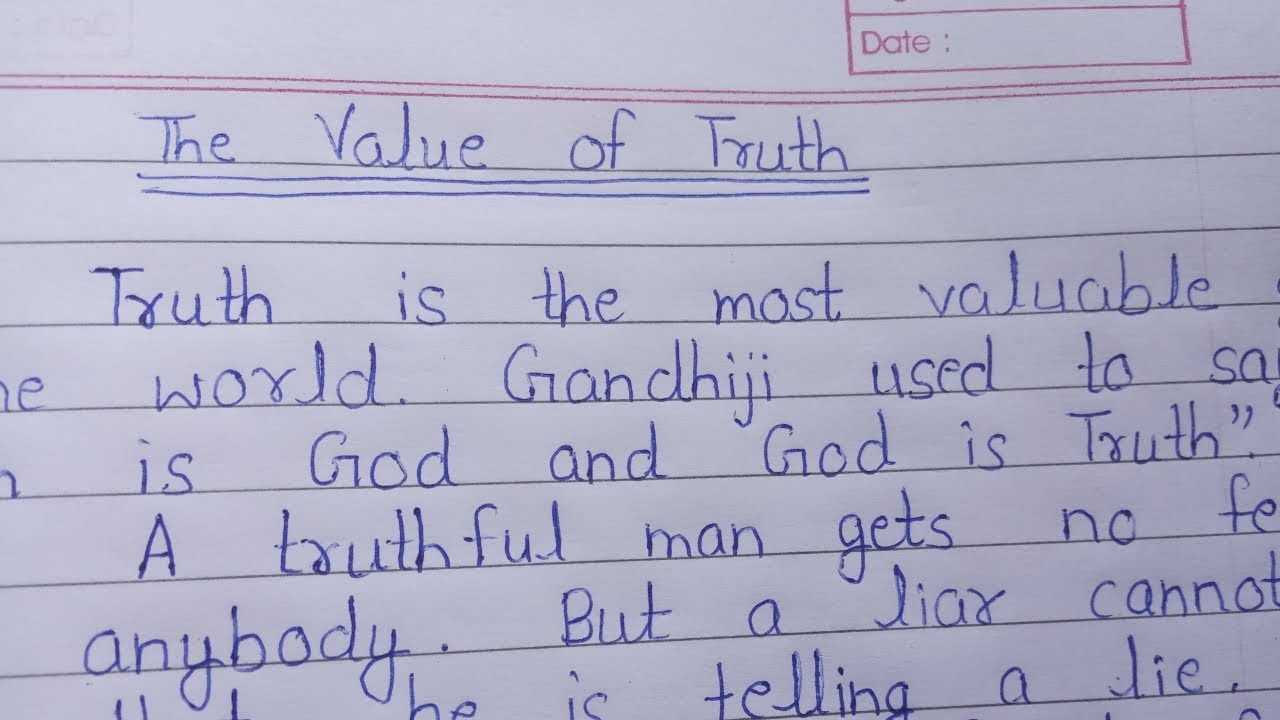 Date :
The Value of Truth
Truth is the most valuable
world. Gandhiji used to
is God and God is Truth”.
A truthful man gets no
anybody. But a liar cannot
he is telling a lie.